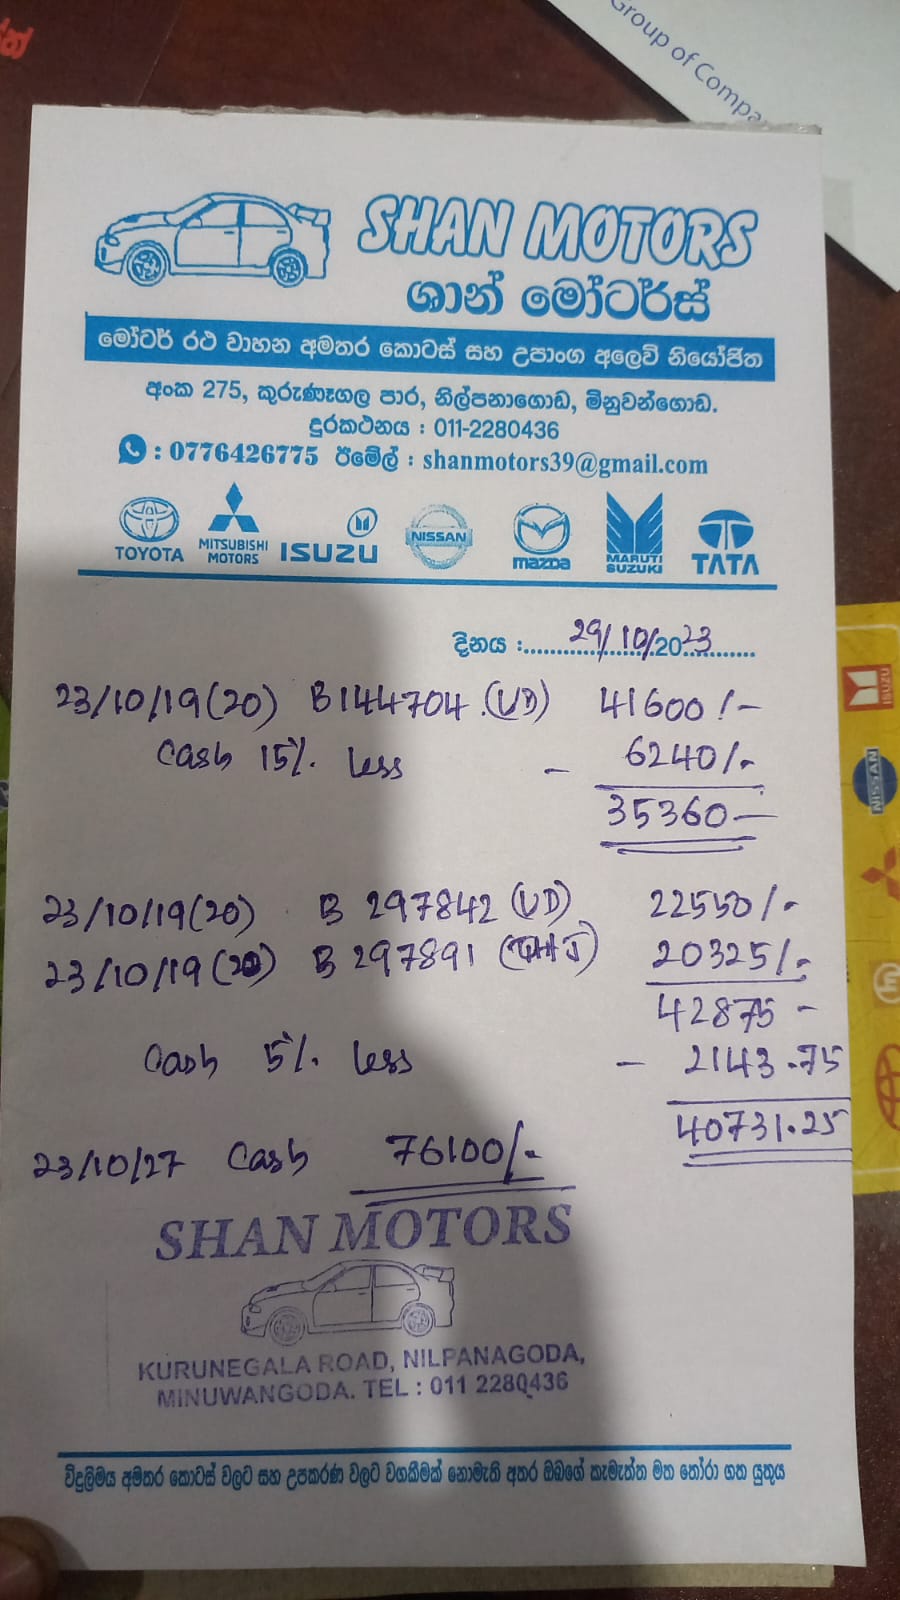 ින්
Group of Compa
SHAN MOTORS
ශාන් මෝටර්ස්
මෝටර් රථ වාහන අමතර කොටස් සහ උපාංග අලෙවි නියෝජිත
අංක 275, කුරුණෑගල පාර, නිල්පනාගොඩ, මිනුවන්ගොඩ.
දුරකථනය : 011-2280436
: 0776426775 ඊමේල් : shanmotors39@gmail.com
TOYOTA MITSUBISHI MOTORS ISUZU NISSAN mazda MARUTI SUZUKI TATA
දිනය :..... 29/10/2023 .....
23/10/19(20) B144704 (UD) 41600/-
Cash 15% Less - 6240/-
35360-
23/10/19(20) B 297842 (UD) 22550/-
23/10/19(20) B 297891 (THJ) 20325/-
42875 -
Cash 5% Less - 2143.75
40731.25
23/10/27 Cash 76100/-
SHAN MOTORS
KURUNEGALA ROAD, NILPANAGODA,
MINUWANGODA. TEL : 011 2280436
විදුලිමය අමතර කොටස් වලට සහ උපකරණ වලට වගකීමක් නොමැති අතර ඔබගේ කැමැත්ත මත තෝරා ගත යුතුය
ISUZU
NISSAN